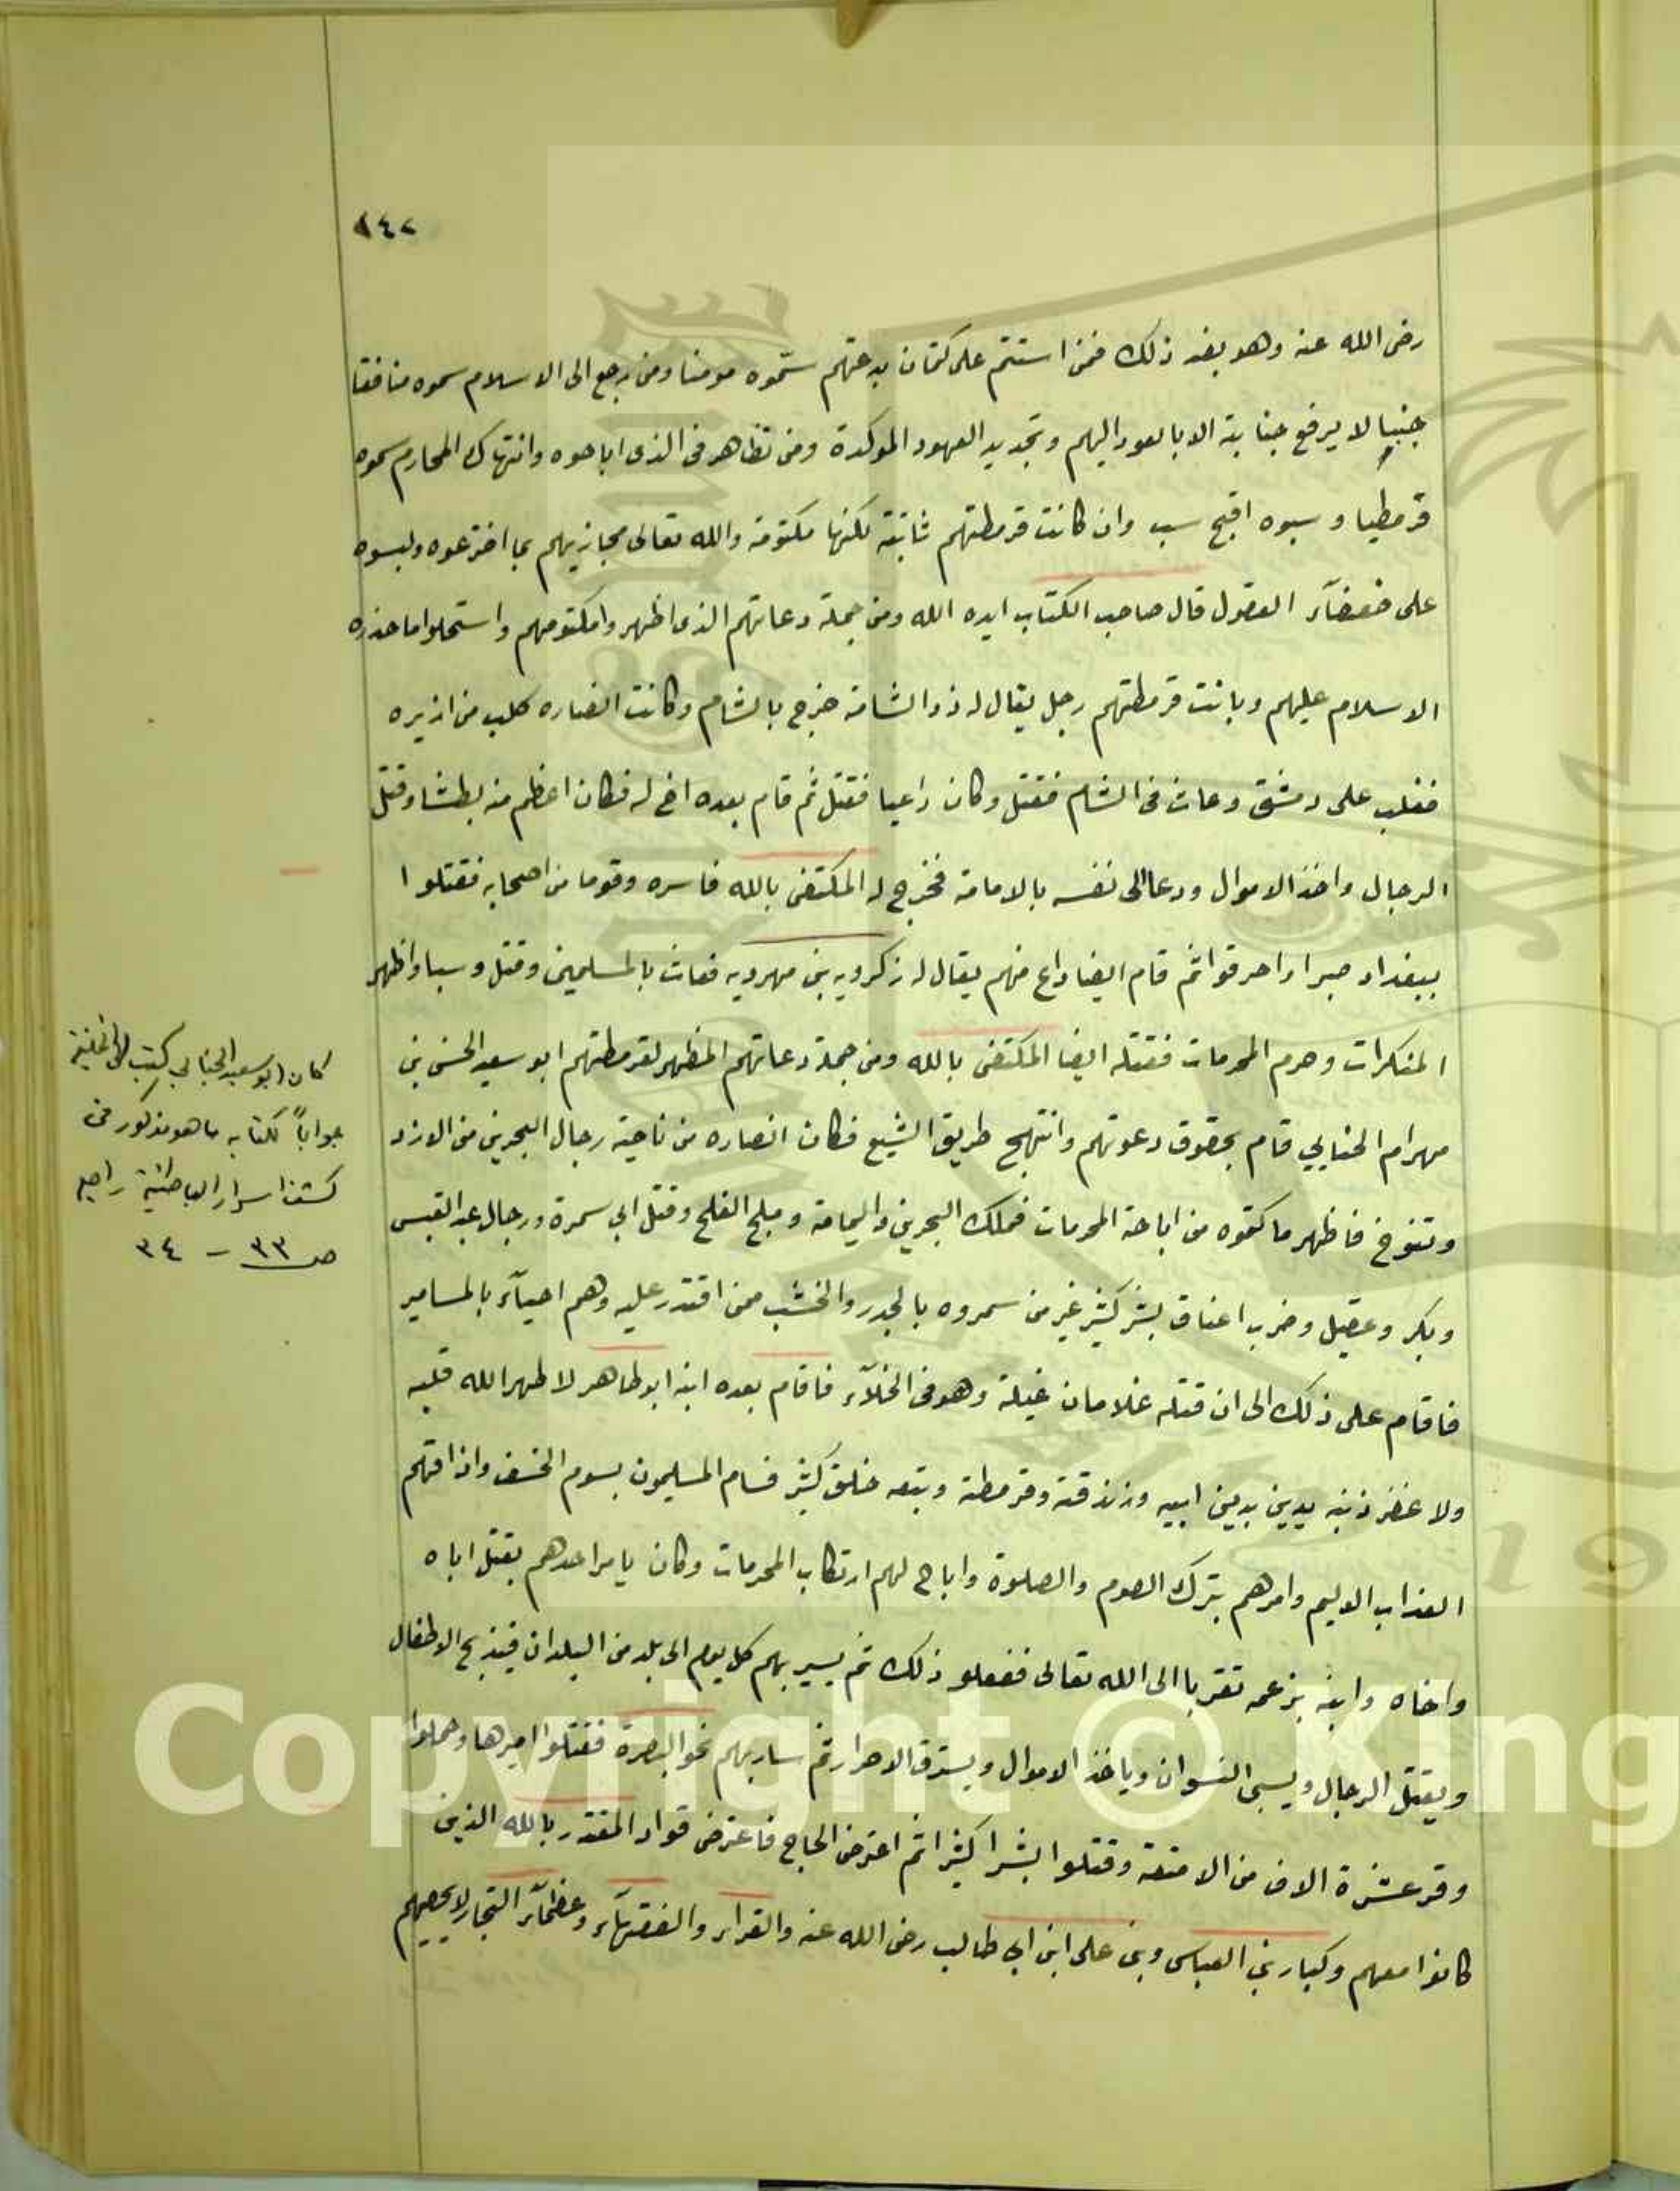 ١٤٢
رضى الله عنه وهو بفد ذلك فمن استتم على كتمان بدعتهم سمّوه مومنا ومن رجع الى الاسلام سموه منافقا
جنبيا لا يرفع جنابة الا بالعود اليهم وتجديد العهود الموكدة ومن تظاهر فى الذى اباحوه وانتهاك المحارم سموه
قرمطيا وسبوه اقبح سب وان كانت قرمطتهم ثابتة لكنها مكتومة والله تعالى مجازيهم بما اخترعوه ولبسوه
على ضعفآء العقول قال صاحب الكتاب ايده الله ومن جملة دعاتهم الذى اظهروا مكتومهم واستحلوا ما حذره
الاسلام عليهم وبانت قرمطتهم رجل يقال له ذو الشامة خرج بالشام وكانت انصاره كلب من
فغلب على دمشق وعاث فى الشام فقتل وكان داعيا فقتل ثم قام بعده اخ له فكان اعظم منه بطشا وقتل
الرجال واخذ الاموال ودعا الى نفسه بالامامة فخرج له المكتفى بالله فاسره وقوما من اصحابه فقتلوا
ببغداد صبرا واحرقوا ثم قام ايضا داع منهم يقال له زكرويه بن مهرويه فعاث بالمسلمين وقتل وسبا واظهر
المنكرات وهرم المحرمات فقتله ايضا المكتفى بالله ومن جملة دعاتهم المظهر لقرمطتهم ابو سعيد الحسن بن
مهرام الجنابي قام بحقوق دعوتهم وانتهج طريق الشيع فكان انصاره من ناحية رجال البحرين من الازد
وتنوخ فاظهر ما كتموه من اباحة المحرمات فملك البحرين واليمامة وملج الفلج وقتل ابي سمرة ورجال عبد القيس
وبكر وعقيل وضرب اعناق بشر كثير غير من سمروه بالجدر والخشب ممن اقتدر عليه وهم احيآء بالمسامير
فاقام على ذلك الى ان قتله غلامان غيلة وهو فى الخلآء فاقام بعده ابنه ابو طاهر لا طهر الله قلبه
ولا غفر ذنبه يدين بدين ابيه وزندقته وقرمطة وتبعه خلق كثير فسام المسليمون بسوم الخسف واذاقهم
العذاب الاليم وامرهم بترك الصوم والصلوة واباح لهم ارتكاب المحرمات وكان يامر احدهم بقتل اباه
واخاه وابنه بزعمه تقربا الى الله تعالى ففعلو ذلك ثم يسير بهم كل يوم الى بلد من البلدان فيذبح الاطفال
ويقتل الرجال ويسبى النسوان وياخذ الاموال ويسترق الاحرار ثم سار بهم نحو البصرة فقتلوا اميرها وحملوا
وقر عشرة الاف من الامتعة وقتلوا بشرا كثيرا ثم اعترض الحاج فاعترض قواد المقتدر بالله الذين
كانوا معهم وكبار بني العباس وبنى على ابن ابى طالب رضى الله عنه والقراء والفقهآء وعظمآء التجار لا يحصيهم
كان ابو سعيد الجنابي كتب الى الخليفة
جواباً لكتابه ما هو مذكور فى
كشف اسرار الباطنية راجع
صـ ٣٣ - ٣٤
Copyright © King
19